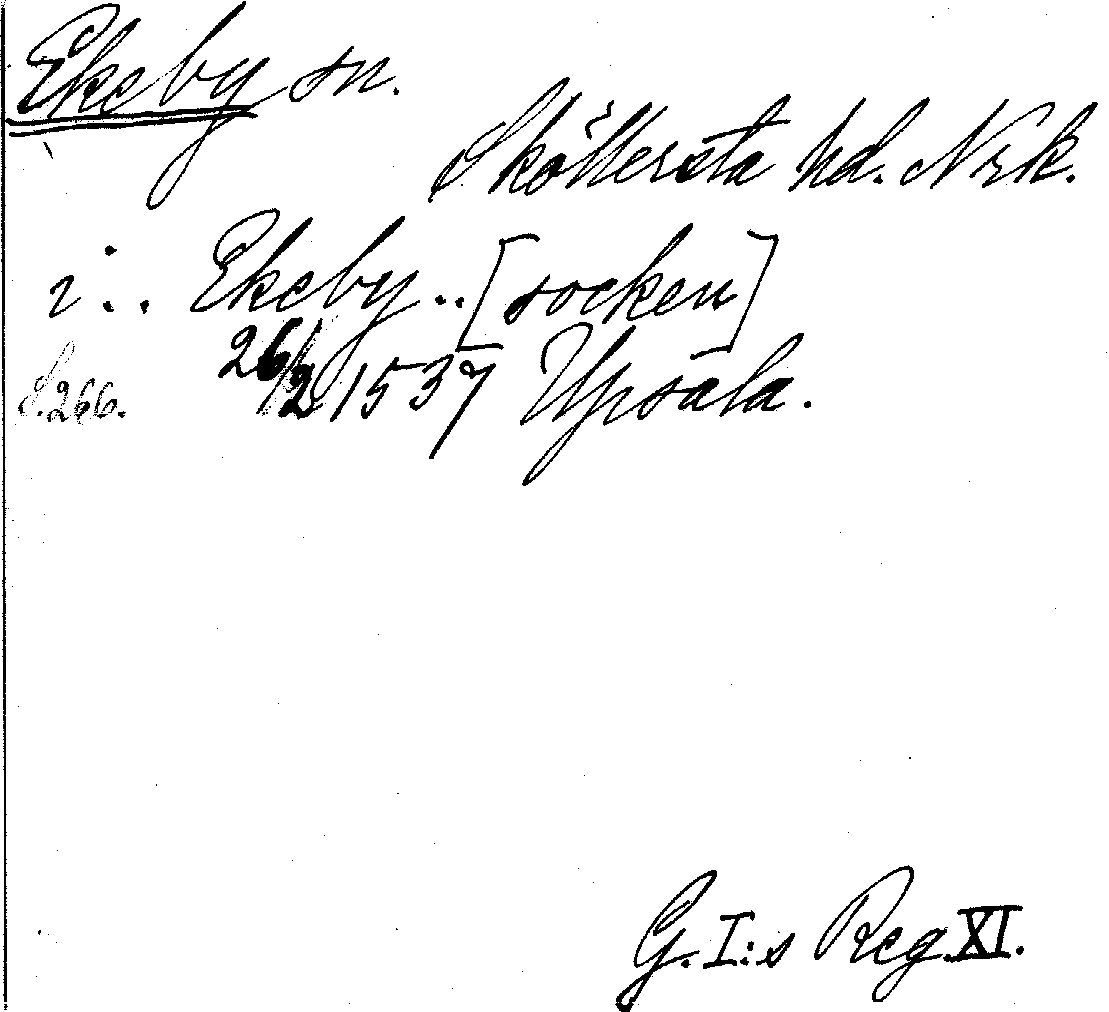 Ekeby sn.
Sköllersta hd. Nrk.
i .. Ekeby .. [socken]
S. 266. 26/2 1537 Upsala.
G. I:s Reg. XI.